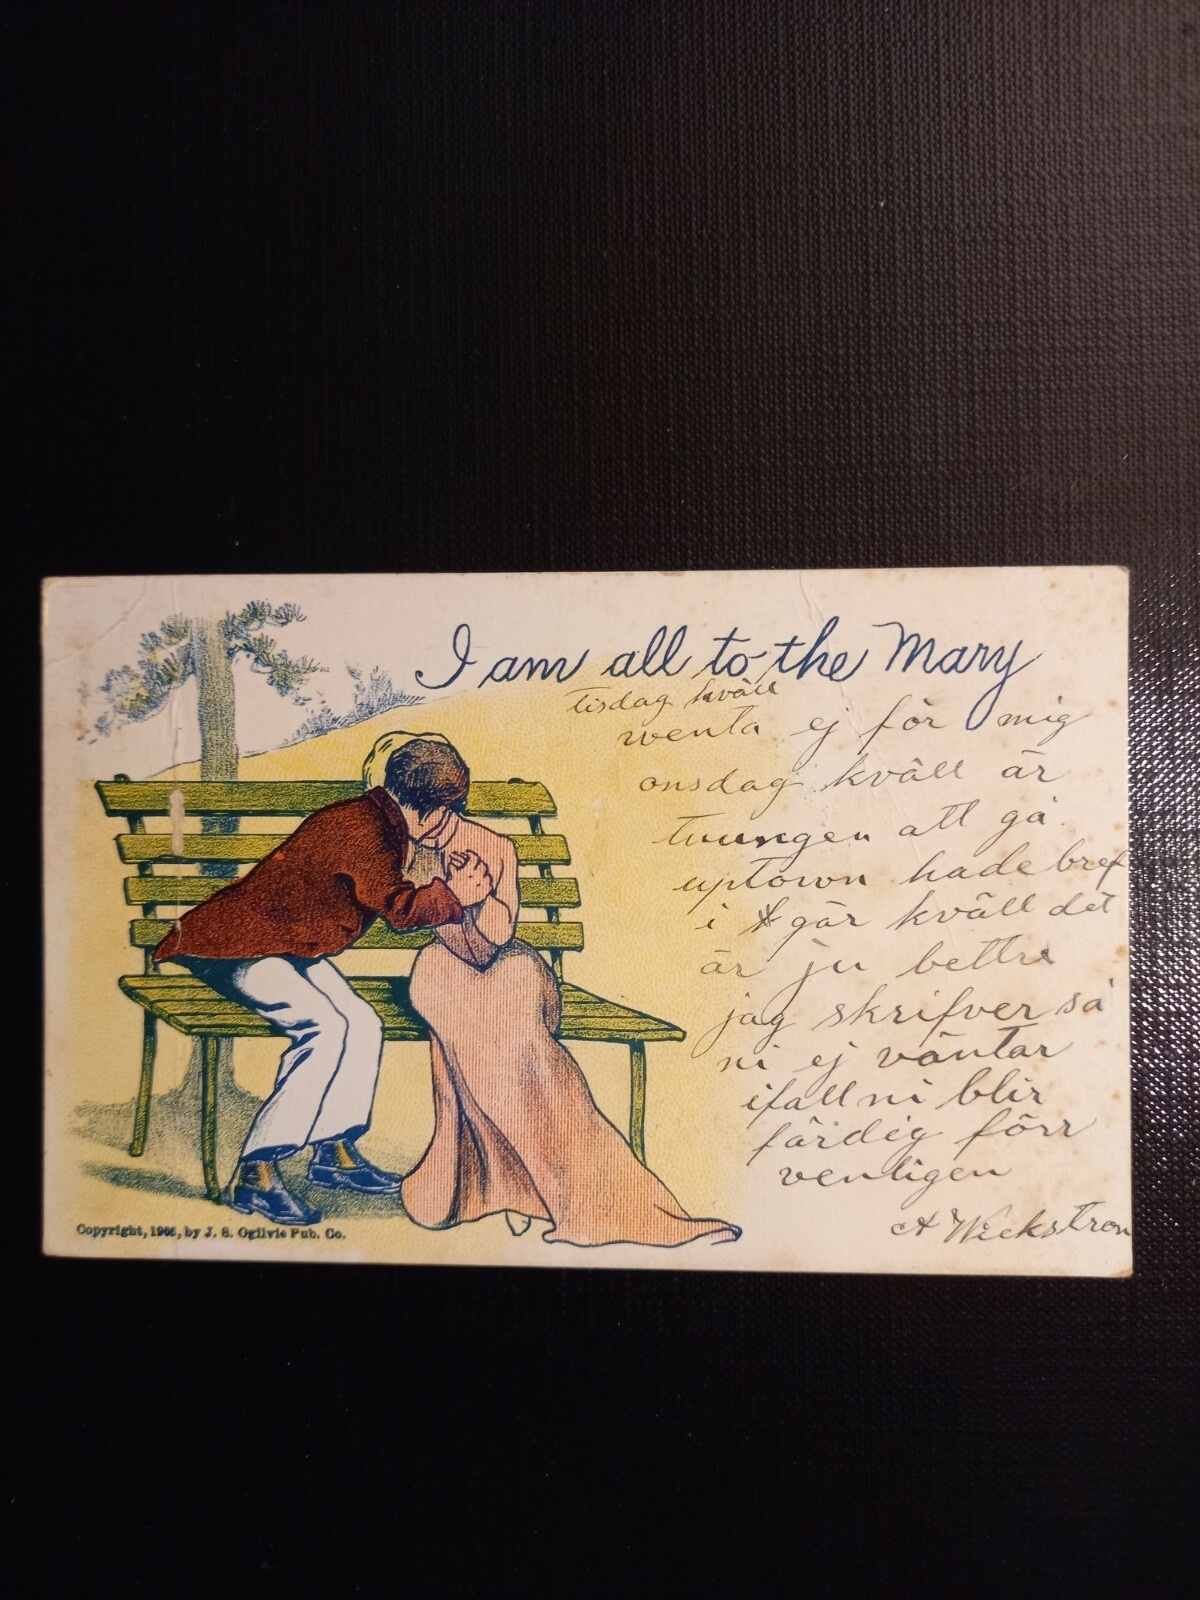 I am all to the Mary
tisdag kväll
wenta ej för mig
onsdag kväll är
tvungen att gå
uptown hade bref
i går kväll det
är ju bettre
jag skrifver så
ni ej väntar
ifall ni blir
färdig förr
venligen
A Wickstrom
Copyright, 1905, by J. S. Ogilvie Pub. Co.